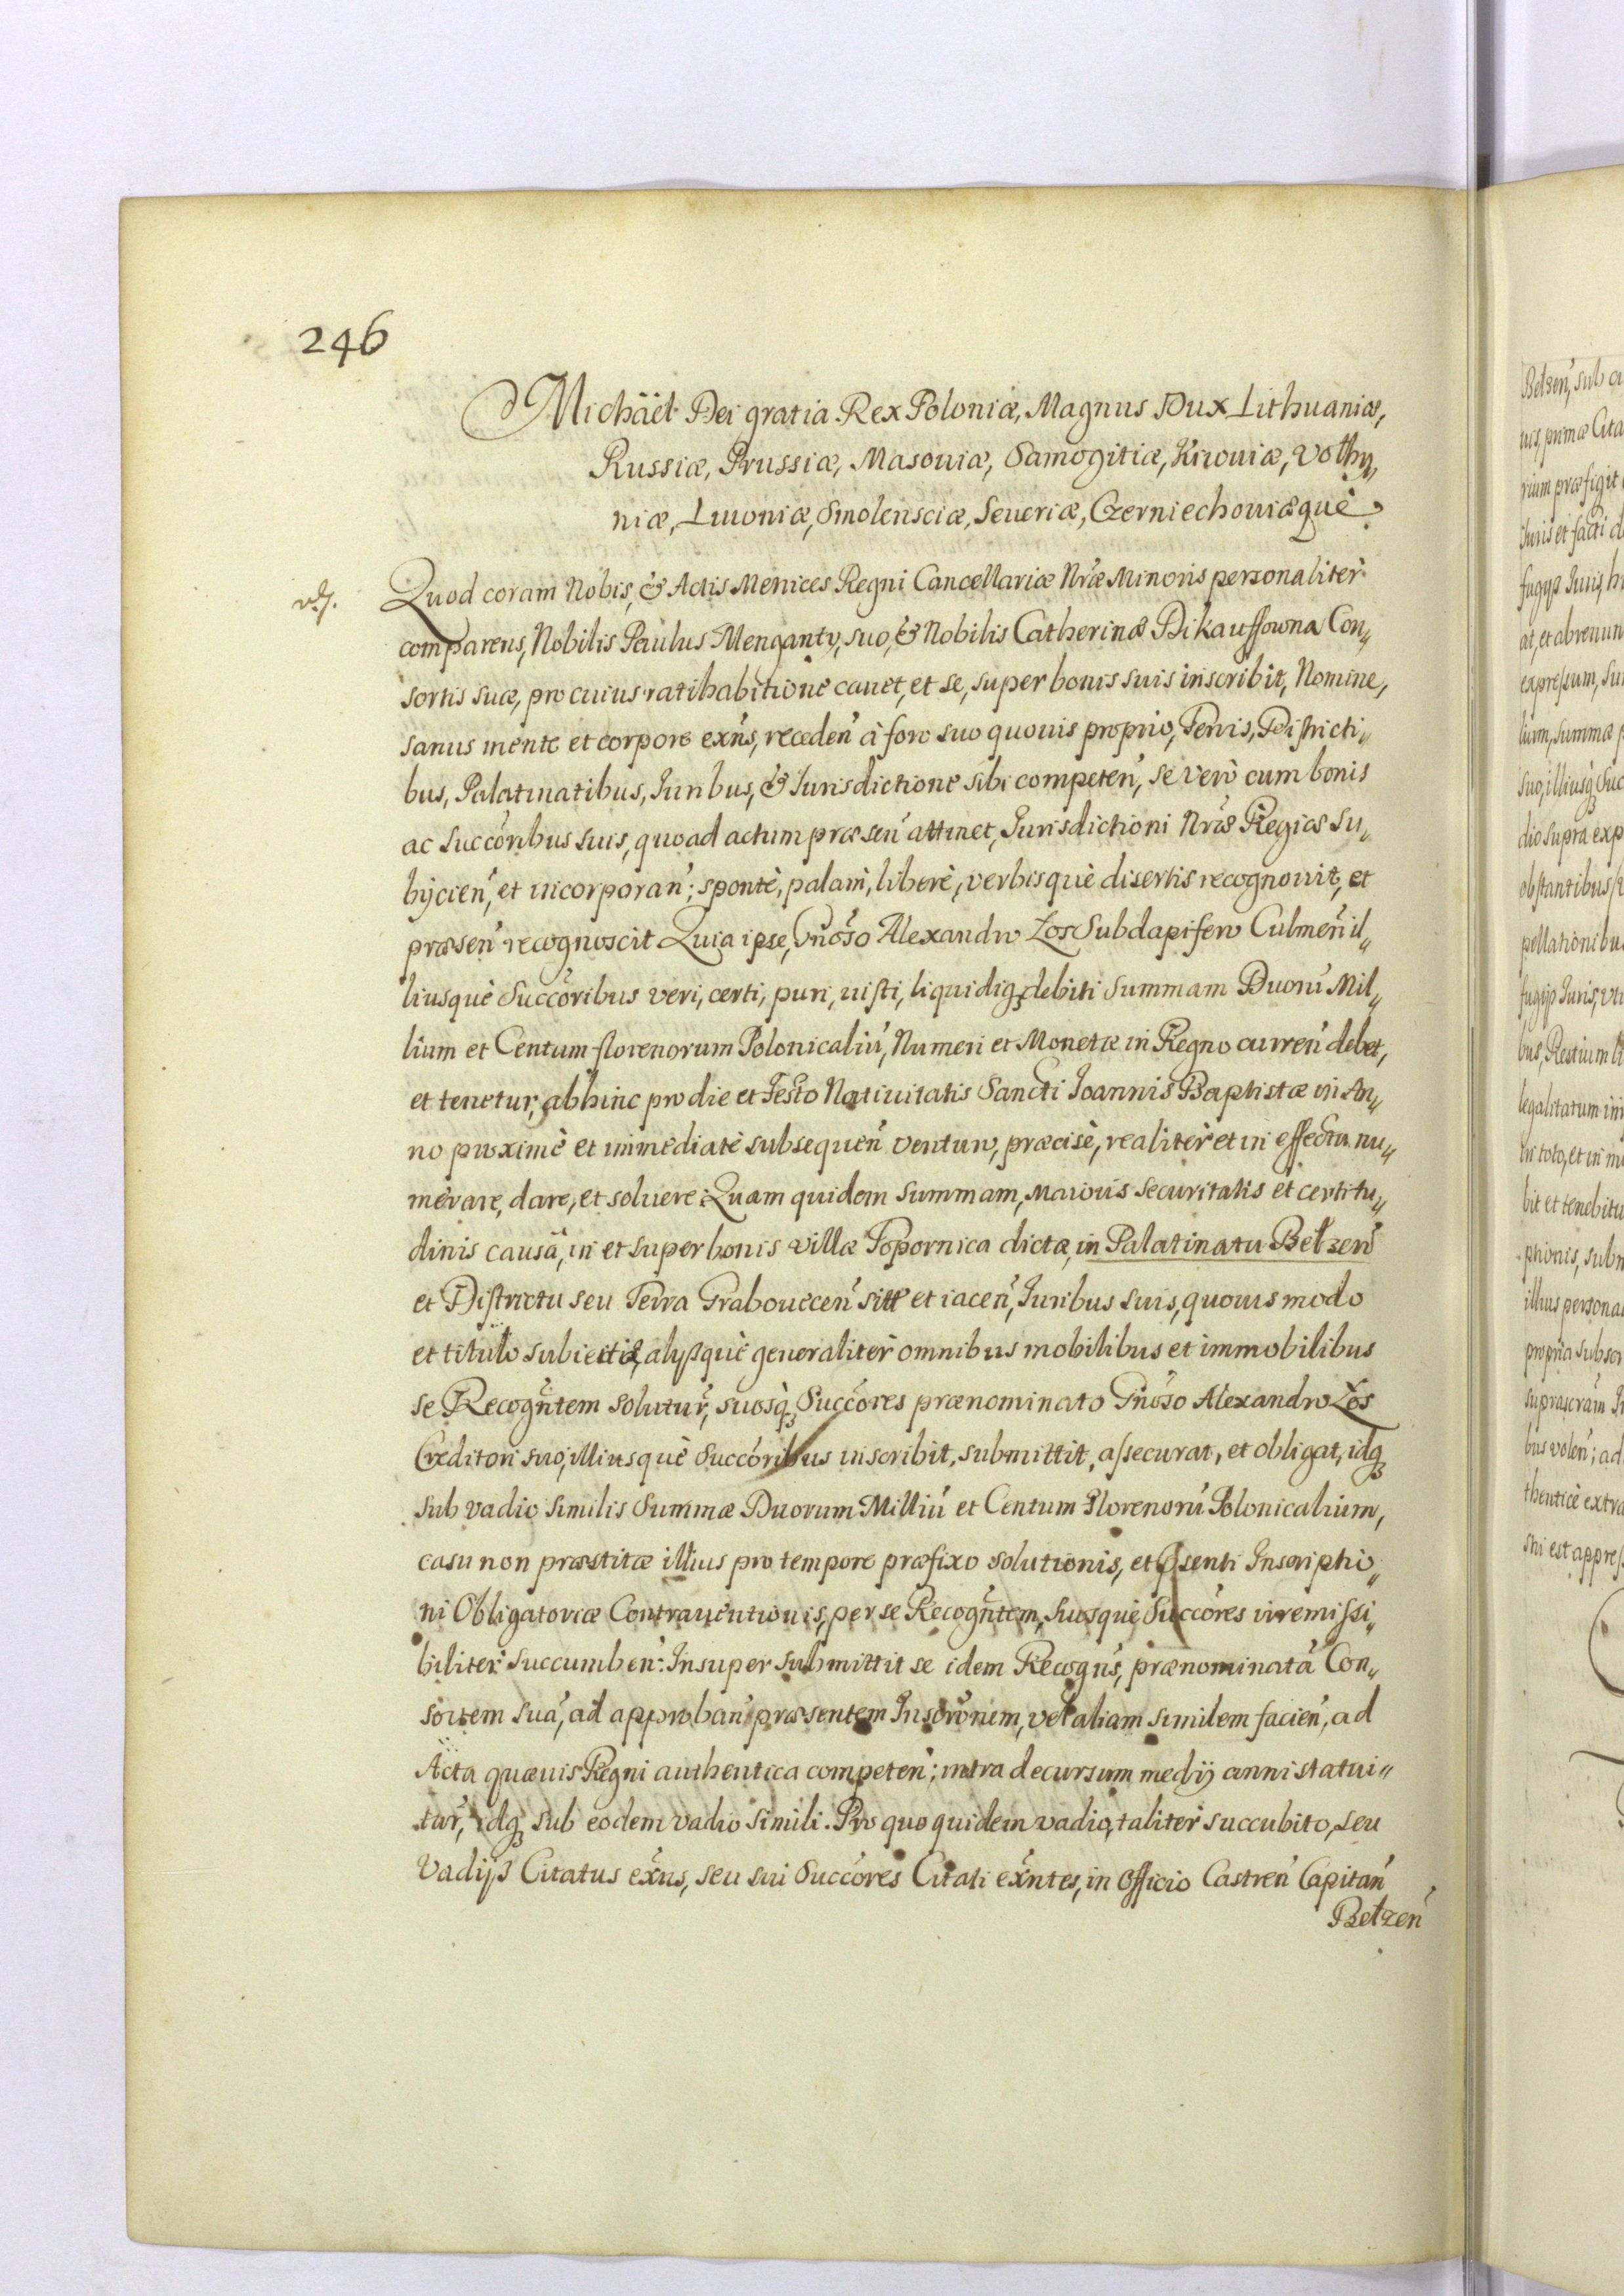 246
Michäel Dei gratia Rex Poloniæ, Magnus Dux Lithuaniæ,
Russiæ, Prussiæ, Masouiæ, Samogitiæ, Kiiouiæ, Volhy„
niæ, Liuoniæ, Smolensciæ, Seueriæ, Czerniechouiæquè
Quod coram Nobis, & Actis Metrices Regni Cancellariæ Nræ Minoris personalitèr
comparens, Nobilis Paulus Menganty, suo, & Nobilis Catherinæ Dikauffowna Con„
sortis suæ, pro cuius ratihabitione cauet, et se, super bonis suis inscribit, Nomine,
sanus mente et corpore exñs, receden̄ à foro suo quouis proprio, Terris, Districti„
bus, Palatinatibus, Iuribus, & Iurisdictione sibi competen̄, se verò cum bonis
ac Succōribus suis, quoad actum præsen̄ attinet, Iurisdictioni Nræ Regiæ su„
bijcien̄, et incorporan̄; spontè, palàm, liberè, verbisquè disertis recognouit, et
præsen̄ recognoscit Quia ipse, Gnōso Alexandro Łos Subdapifero Culmen̄ il„
liusquè Succōribus veri, certi, puri, iusti, liquidiq; debiti Summam Duorū Mil„
lium et Centum florenorum Polonicaliū, Numeri et Monetæ in Regno curren̄ debet,
et tenetur, abhinc pro die et Festo Natiuitatis Sancti Ioannis Baptistæ in An„
no proximè et immediatè subsequen̄ venturo, præcisè, realitèr et in effectu nu„
merare, dare, et soluere: Quam quidem Summam, maioris securitatis et certitu„
dinis causâ, in et super bonis villæ Topornica dictæ, in Palatinatu Bełzen̄
et Districtu seu Terra Grabouecen̄ sitæ et iacen̄, Iuribus suis, quouis modo
et titulo subiectis, alijsquè generalitèr omnibus mobilibus et immobilibus
se Recogñtem solutur̄, suosq; Succōres prænominato Gnōso Alexandro Łos
Creditori suo, illiusquè Succōribus inscribit, submittit, assecurat, et obligat, idq;
sub vadio similis Summæ Duorum Milliū et Centum Florenorū Polonicalium,
casu non præstitæ illius pro tempore præfixo solutionis, et p̄senti Inscriptio„
ni Obligatoriæ Contrauentionis, per se Recogñtem, Suosquè Succōres irremissi„
bilitèr succumben̄: Insuper submittit se idem Recogñs, prænominatā Con„
sortem suā, ad approban̄ præsentem Inscrōnem, vel aliam similem facien̄, ad
Acta quæuis Regni authentica competen̄; intra decursum medij anni statui„
tur̄, idq; sub eodem vadio simili. Pro quo quidem vadio, talitèr succubito, seu
Vadijs Citatus exñs, seu sui Succōres Citati exñtes, in Officio Castren̄ Capitan̄
Bełzen̄